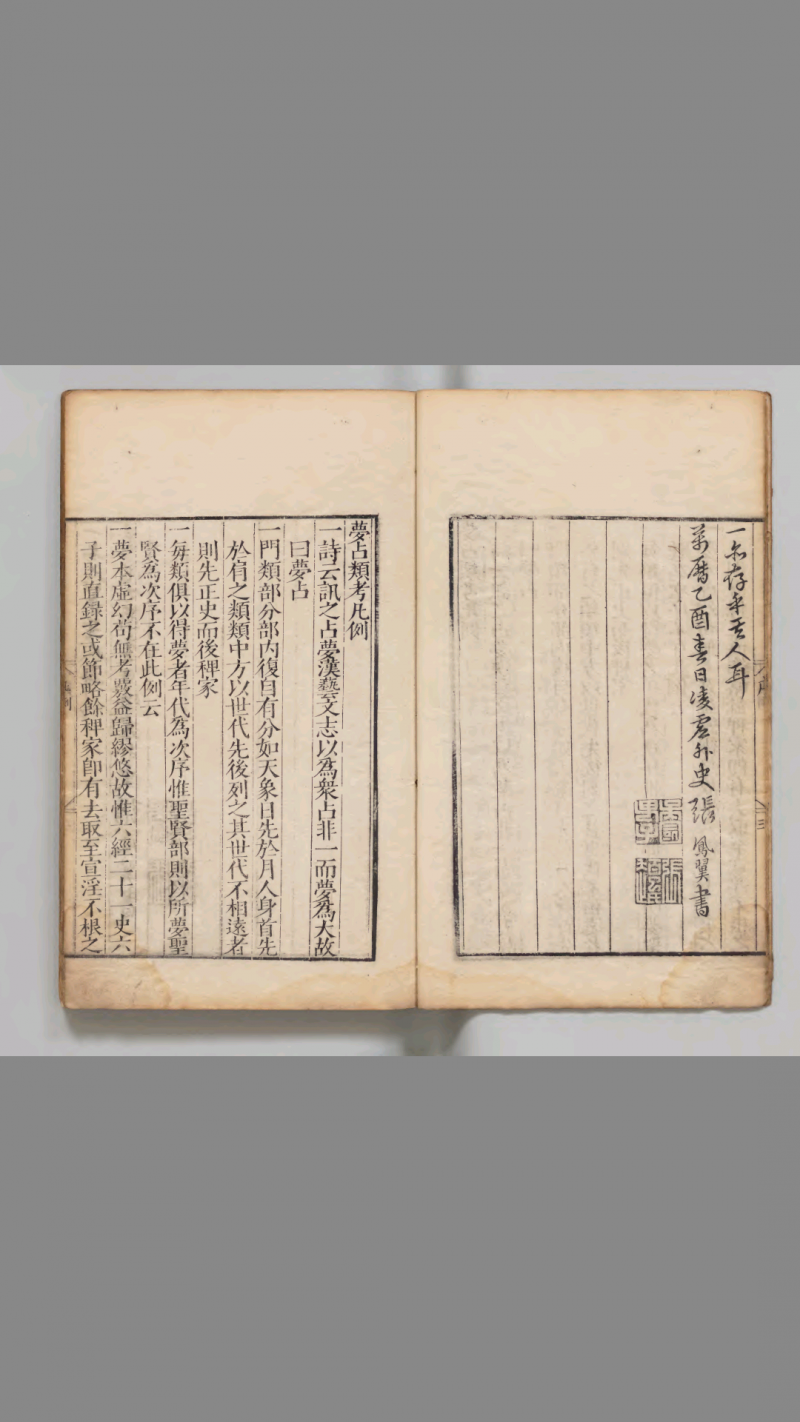 一亦存乎其人耳
萬曆乙酉春日凌虛外史張鳳翼書
夢占類考凡例
一詩云訊之占夢漢藝文志以為衆占非一而夢為大故
曰夢占
一門類部分部内復自有分如天象日先於月人身首先
於肩之類類中方以世代先後列之其世代不相遠者
則先正史而後稗家
一每類俱以得夢者年代為次序惟聖賢部則以所夢聖
賢為次序不在此例云
一夢本虛幻苟無考覈益歸繆悠故惟六經二十一史六
子則直録之或節略餘稗家即有去取至宣淫不根之